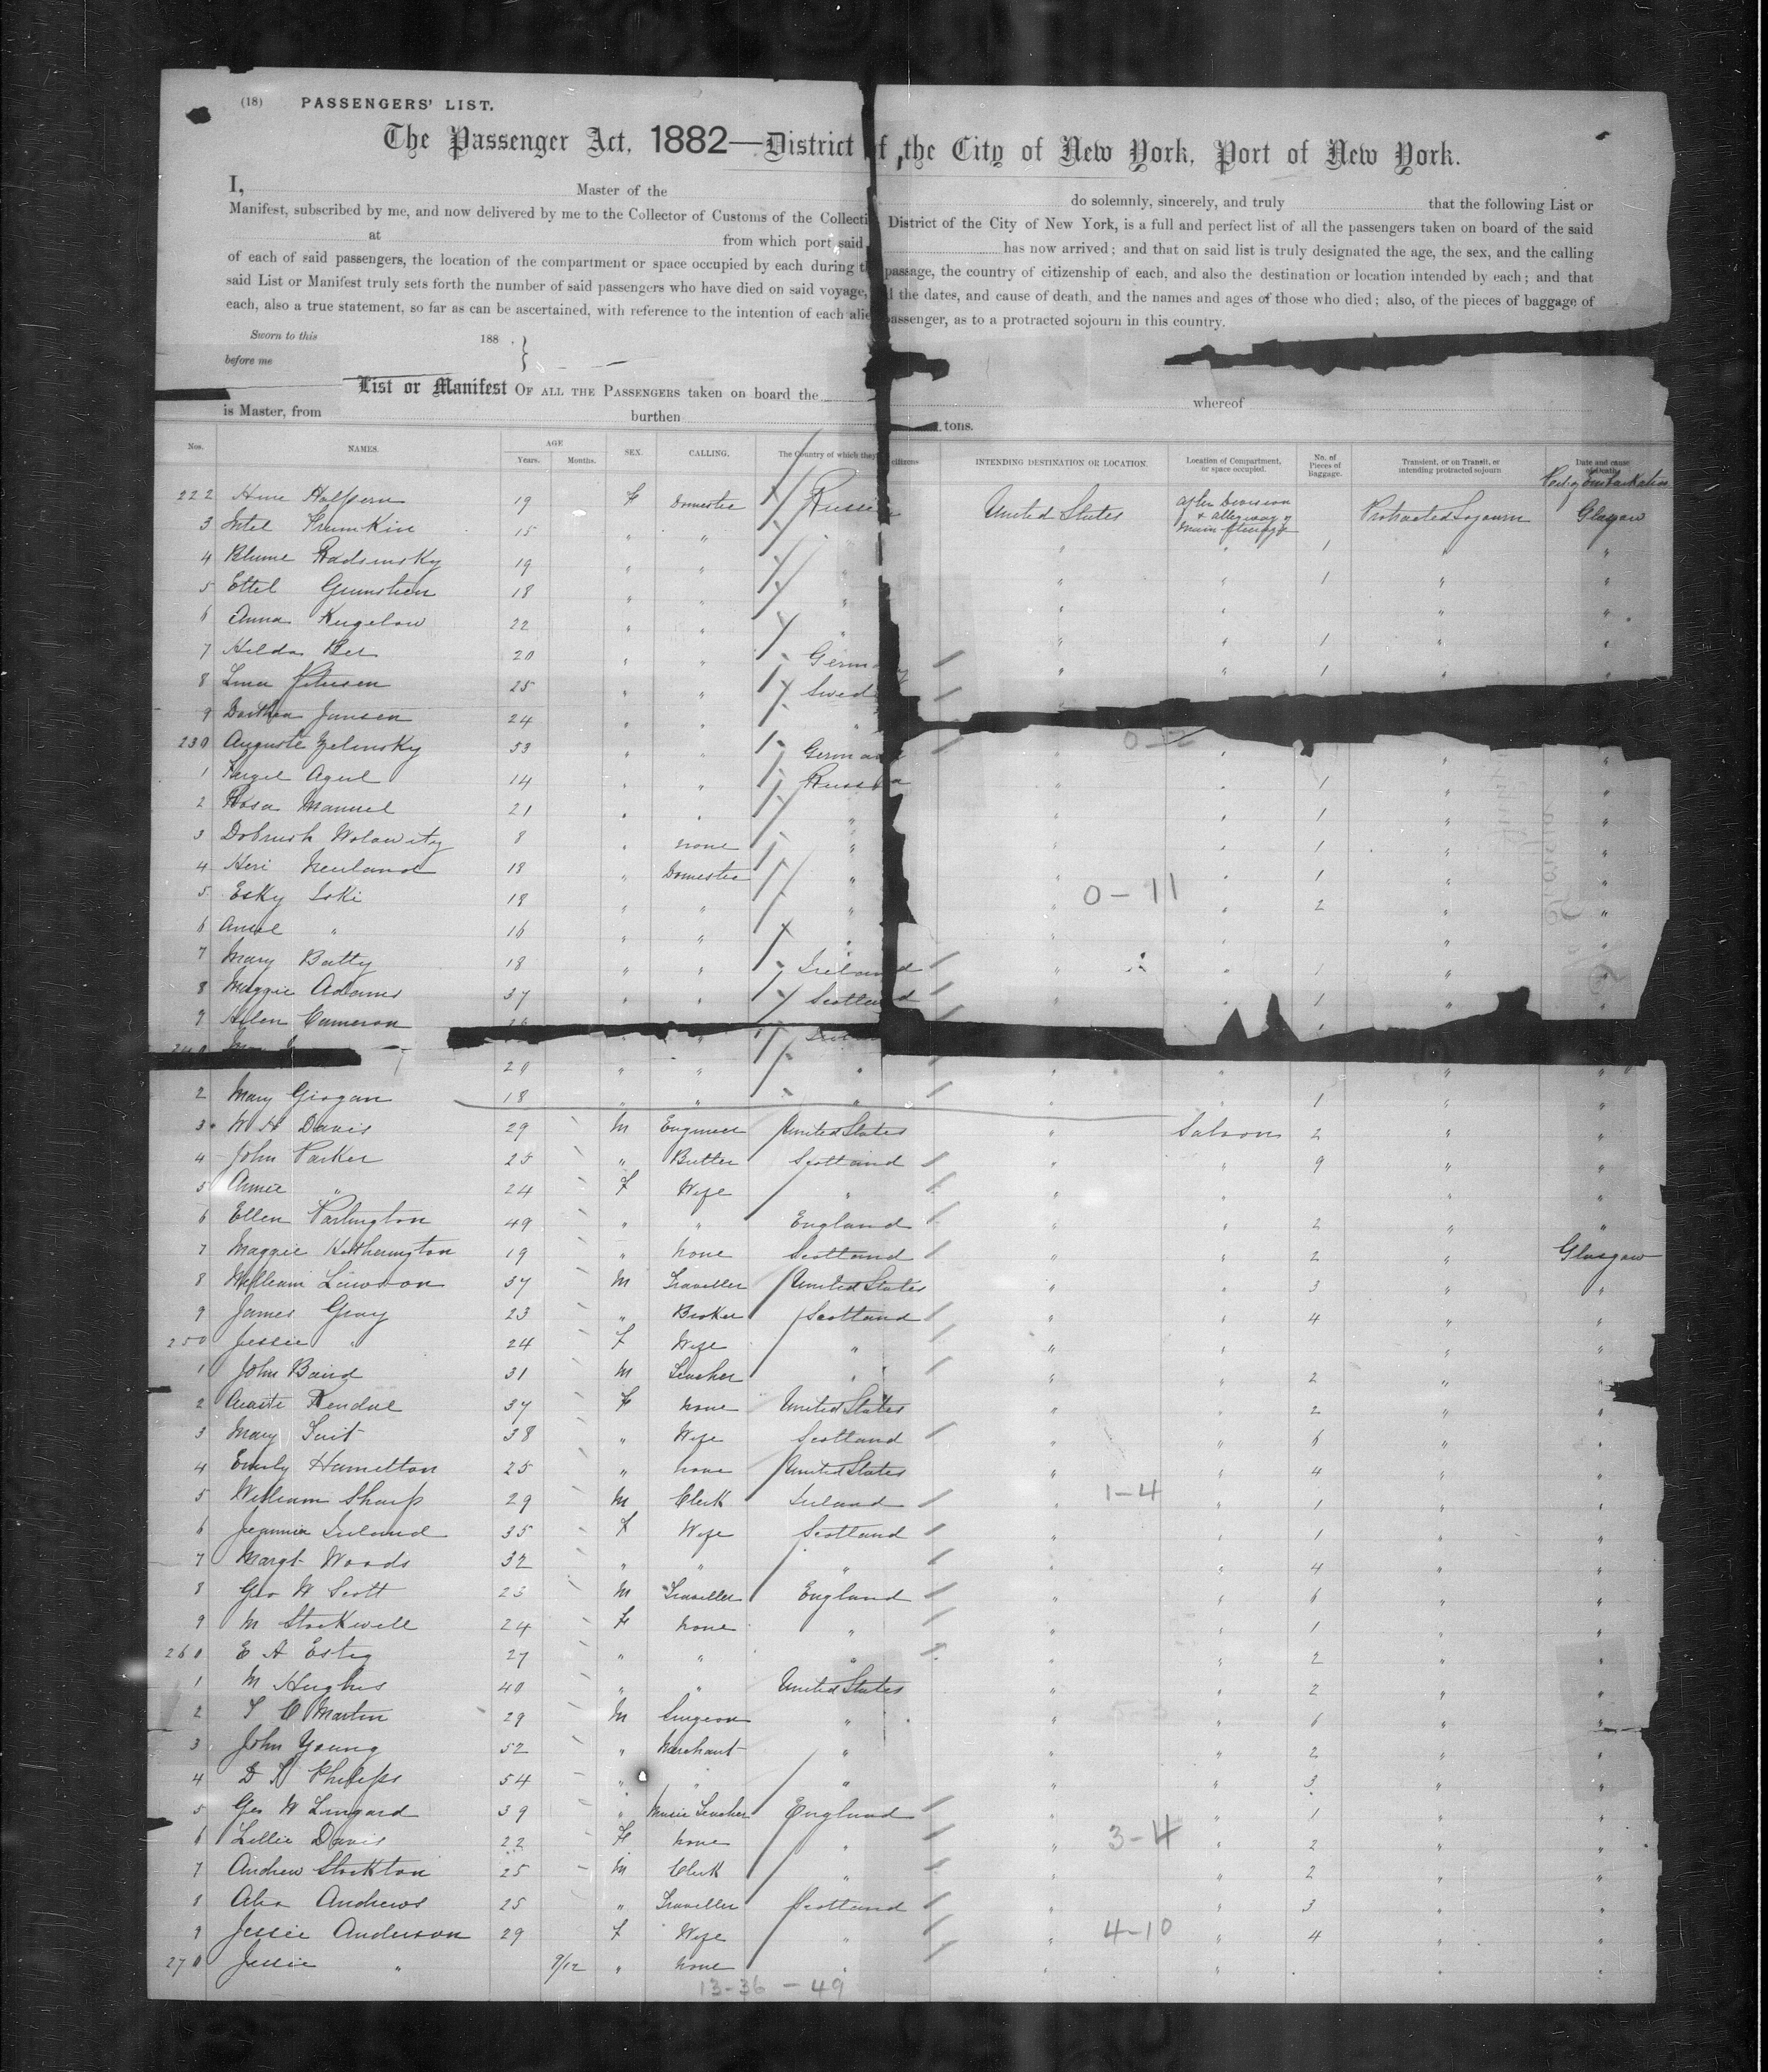 (18) PASSENGERS' LIST.
The Passenger Act, 1882—District of the City of New York, Port of New York.
I, Master of the do solemnly, sincerely, and truly that the following List or
Manifest, subscribed by me, and now delivered by me to the Collector of Customs of the Collecti District of the City of New York, is a full and perfect list of all the passengers taken on board of the said
at from which port said has now arrived; and that on said list is truly designated the age, the sex, and the calling
of each of said passengers, the location of the compartment or space occupied by each during t passage, the country of citizenship of each, and also the destination or location intended by each; and that
said List or Manifest truly sets forth the number of said passengers who have died on said voyage, the dates, and cause of death, and the names and ages of those who died; also, of the pieces of baggage of
each, also a true statement, so far as can be ascertained, with reference to the intention of each alie passenger, as to a protracted sojourn in this country.
Sworn to this 188 .
before me
List or Manifest OF ALL THE PASSENGERS taken on board the whereof
is Master, from burthen tons.
Nos. NAMES. AGE Years. Months. SEX. CALLING. The Country of which they citizens INTENDING DESTINATION OR LOCATION. Location of Compartment, or space occupied. No. of Pieces of Baggage. Transient, or on Transit, or intending protracted sojourn Date and cause of Death
Port of Embarkation
222 Halpern 19 F Domestic Russia United States After Division & Alleyway of Main Steerage Protracted Sojourn Glasgow
3 Intel Frumkin 15 " " " " " 1 " "
4 Blume Radsinsky 19 " " " " " 1 " "
5 Ettel 18 " " " " " " "
6 Anna 22 " " " " " 1 " "
7 Hilda 20 " " Germ " " 1 " "
8 Petersen 25 " " Swed
9 Dorthea Jansen 24 " " "
230 Auguste Zelinsky 53 " " Germany " " "
1 14 " " Russia " 1 " "
2 Rosa Manuel 21 " " " " " 1 " "
3 Dobrush Wolawitz 8 " none " " " 1 " "
4 Neuland 18 " Domestic " " " 1 " "
5 Esky 18 " " " " " 2 " "
0-11
6 " 16 " " " " " " "
7 Mary Batty 18 " " Ireland " " 1 " "
8 Maggie Adams 37 " " Scotland " " 1 " "
9 Cameron
20 " " " " " " "
2 Mary Grogan 18 " " " " " 1 " "
3 W H Davis 29 M Engineer United States " Saloon 2 " "
4 John Parker 25 " Scotland " " 9 " "
5 Annie " 24 F Wife " " " " "
6 Ellen Partington 49 " " England " " 2 " "
7 Maggie Hetherington 19 " none Scotland " " 2 " Glasgow
8 William Lawson 37 M Traveller United States " " 3 " "
9 James Gray 23 " Broker Scotland " " 4 " "
250 Jessie " 24 F Wife " " " " "
1 John Baird 31 M Teacher " " " 2 " "
2 37 F none United States " " 2 " "
3 Mary 38 " Wife Scotland " " 6 " "
4 Emily Hamilton 25 " none United States " " 4 " "
5 William Sharp 29 M Clerk Ireland " " 1 " "
1-4
6 Ireland 35 F Wife Scotland " " 1 " "
7 Margt Woods 32 " " " " " 4 " "
8 Geo W Scott 23 M Traveller England " " 6 " "
9 M Stockwell 24 F none " " " 1 " "
260 E A 27 " " " " " 2 " "
1 M Hughes 40 " " United States " " 2 " "
2 Martin 29 M Surgeon " " " 6 " "
3 John Young 52 " Merchant " " " 2 " "
4 Phelps 54 " " " " " 3 " "
5 Geo W Lingard 39 " Music Teacher England " " 1 " "
6 Lillie Davis 22 F none " " " 2 " "
3-4
7 Andrew Stockton 25 M Clerk " " " 2 " "
8 Andrews 25 " Traveller Scotland " " 3 " "
9 Jessie Anderson 29 F Wife " " " 4 " "
4-10
270 Jessie " 9/12 " none " " " " "
13-36 - 49